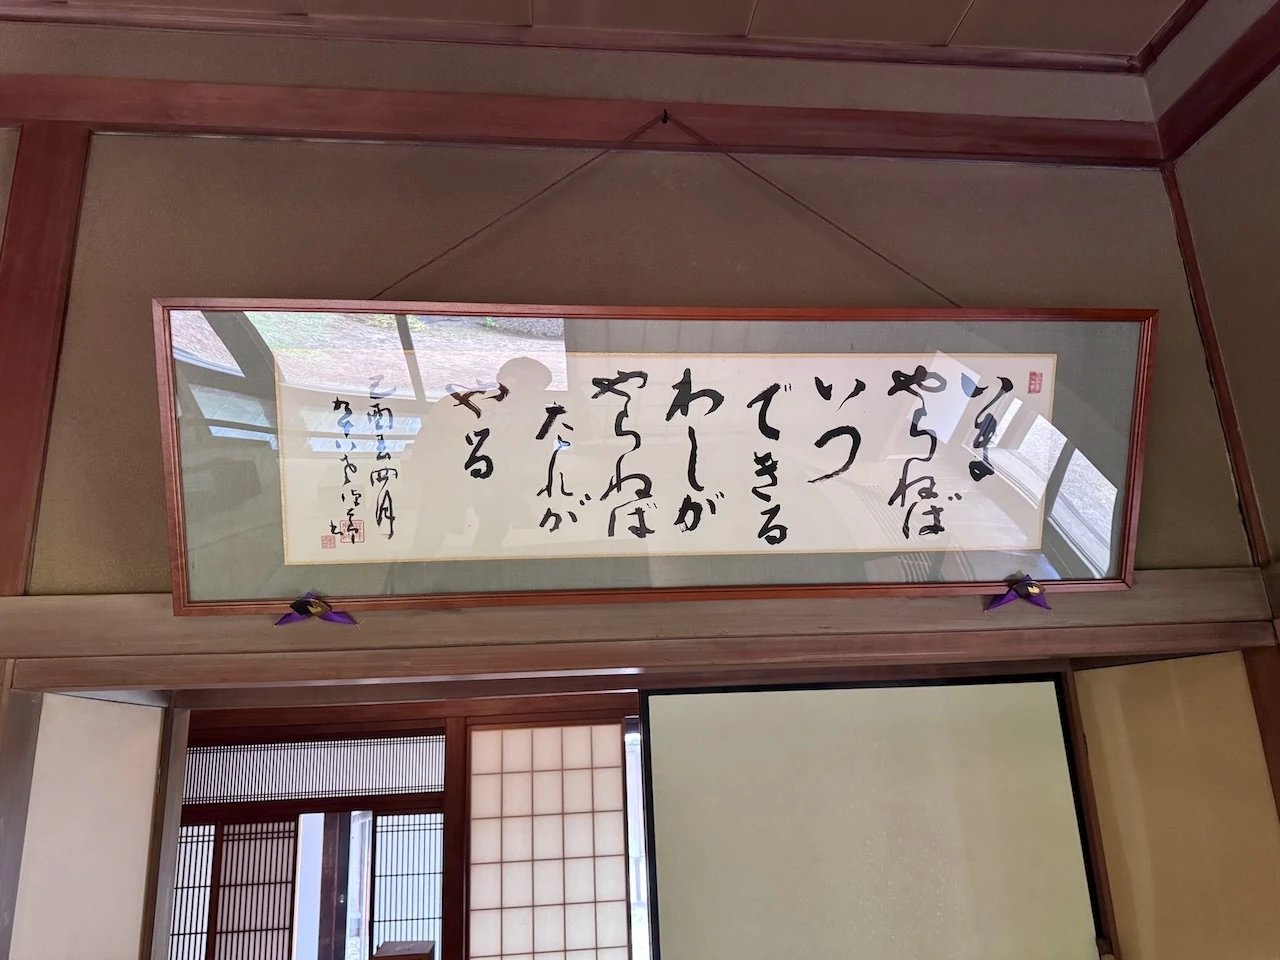 いま
やらねば
いつ
できる
わしが
やらねば
たれが
やる
乙酉春四月
九十八叟